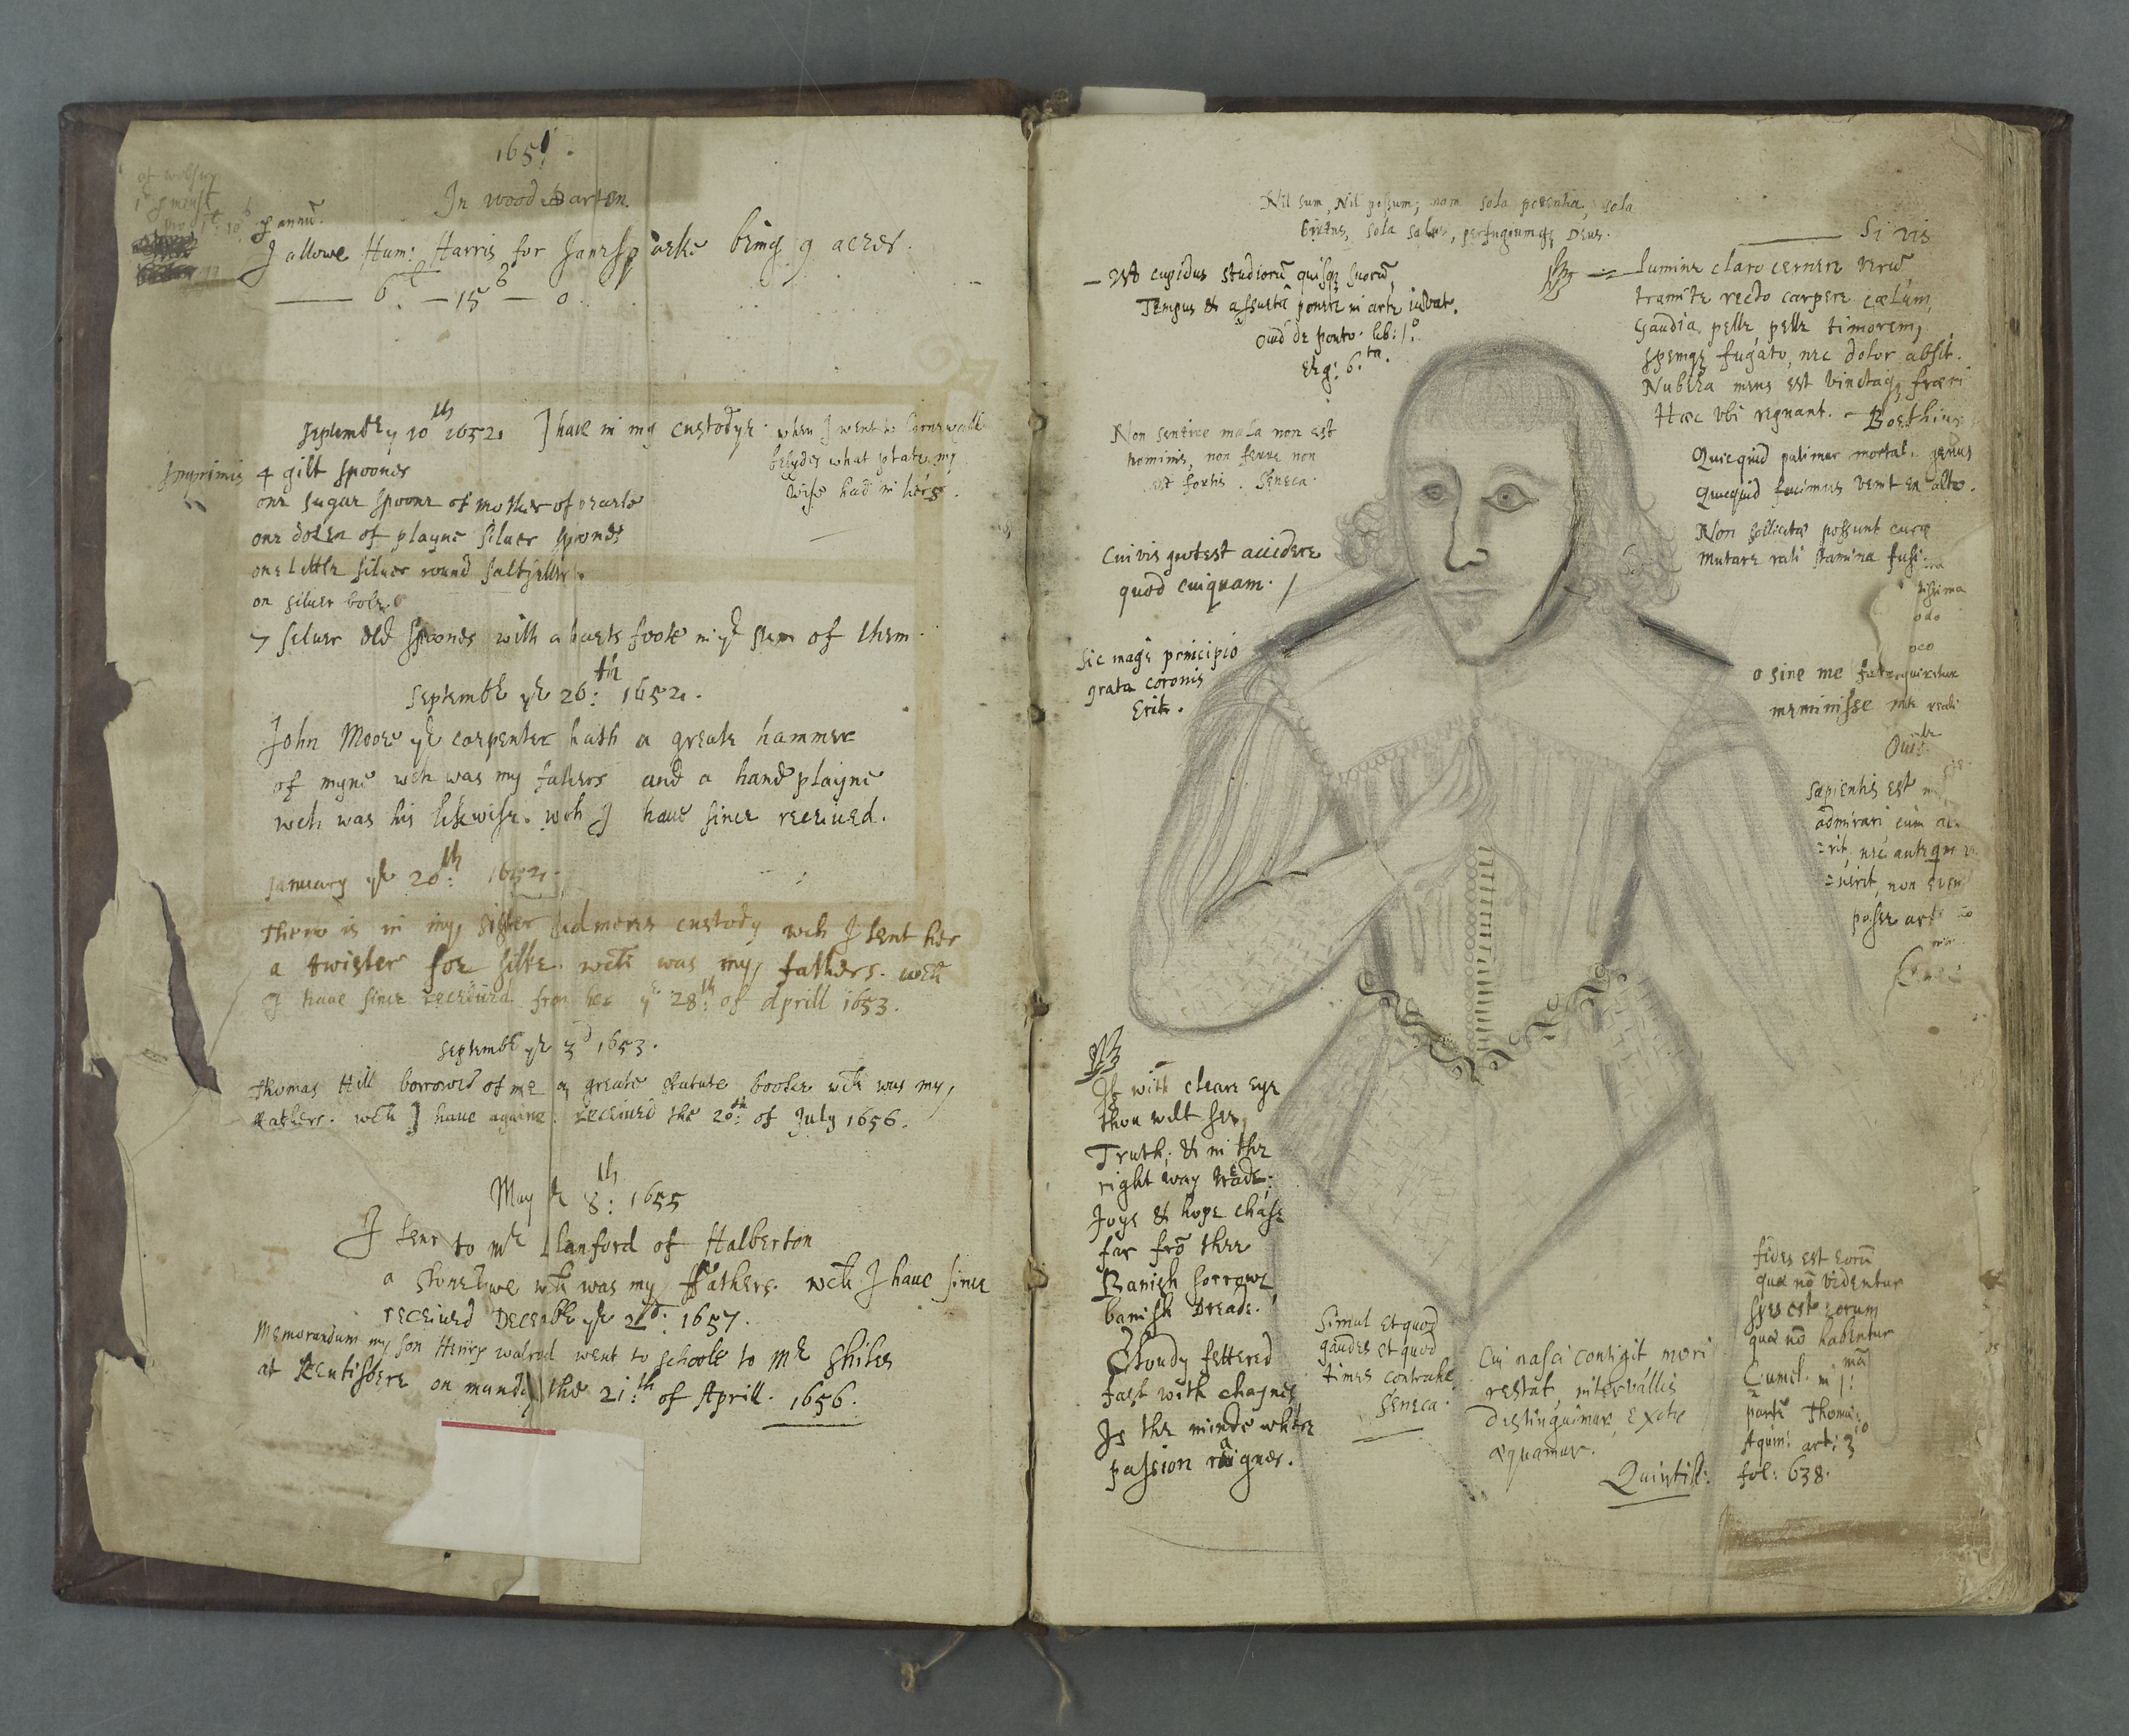 1651.
In wood Barton.
of
p annũ.
I allowe Hum: Harris for being 9 acres.
6 — 15 — 0.
September yͤ 10th 1652. I have in my custodye when I went to Cornewall
besydes what plate my
wife had in hers.
Imprimis 4 gilt spoones
one sugar spoone of mother of pearle
one dozen of playne silver spoones
one little silver round saltseller
on silver bole
7 silver old spoones with a foote in yͤ of them
Septembr yͤ 26:th 1652.
John Moore yͤ carpenter hath a greate hammer
of myne wch was my fathers and a hand playne
wch was his likewise. wch I have since received.
January yͤ 20:th 1652.
There is in my sister custody wch I lent her
a twister for silke. wch was my fathers. wch
I have since received from her yͤ 28:th of Aprill 1653.
Septembr yͤ 3d 1653.
Thomas Hill borrowed of me a greate statute booke wch was my
fathers. wch I have againe received the 20:th of July 1656.
May yͤ 8:th 1655
I lent to Mr Manford of Halberton
a wch was my fathers. wch I have since
received Decembr yͤ 1657.
Memorandum my son Henry walrond went to schoole to Mr
at Kentisbere on munday the 21:th of Aprill. 1656.
Nil sum, Nil possum; nam sola potentia, sola
Virtus, sola salus, perfugiumqз Deus.
— Ut cupidus studiorũ quisqз suorũ,
Tempus & assuetâ ponere in arte iuvat.
Ovid de Ponto. lib: 1.o
Eleg: 6.ta
Non sentire mala non est
hominis, non ferre non
est fortis. Seneca.
Cuivis potest accidere
quod cuiquam.
Sic mage principio
grata coronis
Erit.
Si vis
lumine claro cernere verũ,
tramite recto carpere callem,
Gaudia pelle, pelle timorem,
spemqз fugato, nec dolor adsit.
Nubila mens est vinctaqз frænis
Hæc ubi regnant. — Boethius
Quicquid patimur mortale genus
Quicquid facimus venit ex alto.
Non sollicitæ possunt curæ
mutare rati stamina fusi.
o sine me
meminisse
Sapientis est
admirari, cum
nec anteqm
non
posse
If with cleare eye
thou wilt see
Truth, & in the
right way treade;
Joye & hope chase
far frõ thee
Banish sorrowe,
banish Dreade.
Cloudy fettered
fast with chaynes
Is the minde where
passion raignes.
Simul et quod
gaudes et quod
times contrahe.
Seneca.
Cui nasci contigit mori
restat, intervallis
distinguimur, exitu
æquamur.
Quintil:
fides est eorũ
quæ nõ videntur
spes est rerum
quæ nõ habentur
in 1:mã
partẽ Thomæ
Aquin: art: 3
fol: 638.